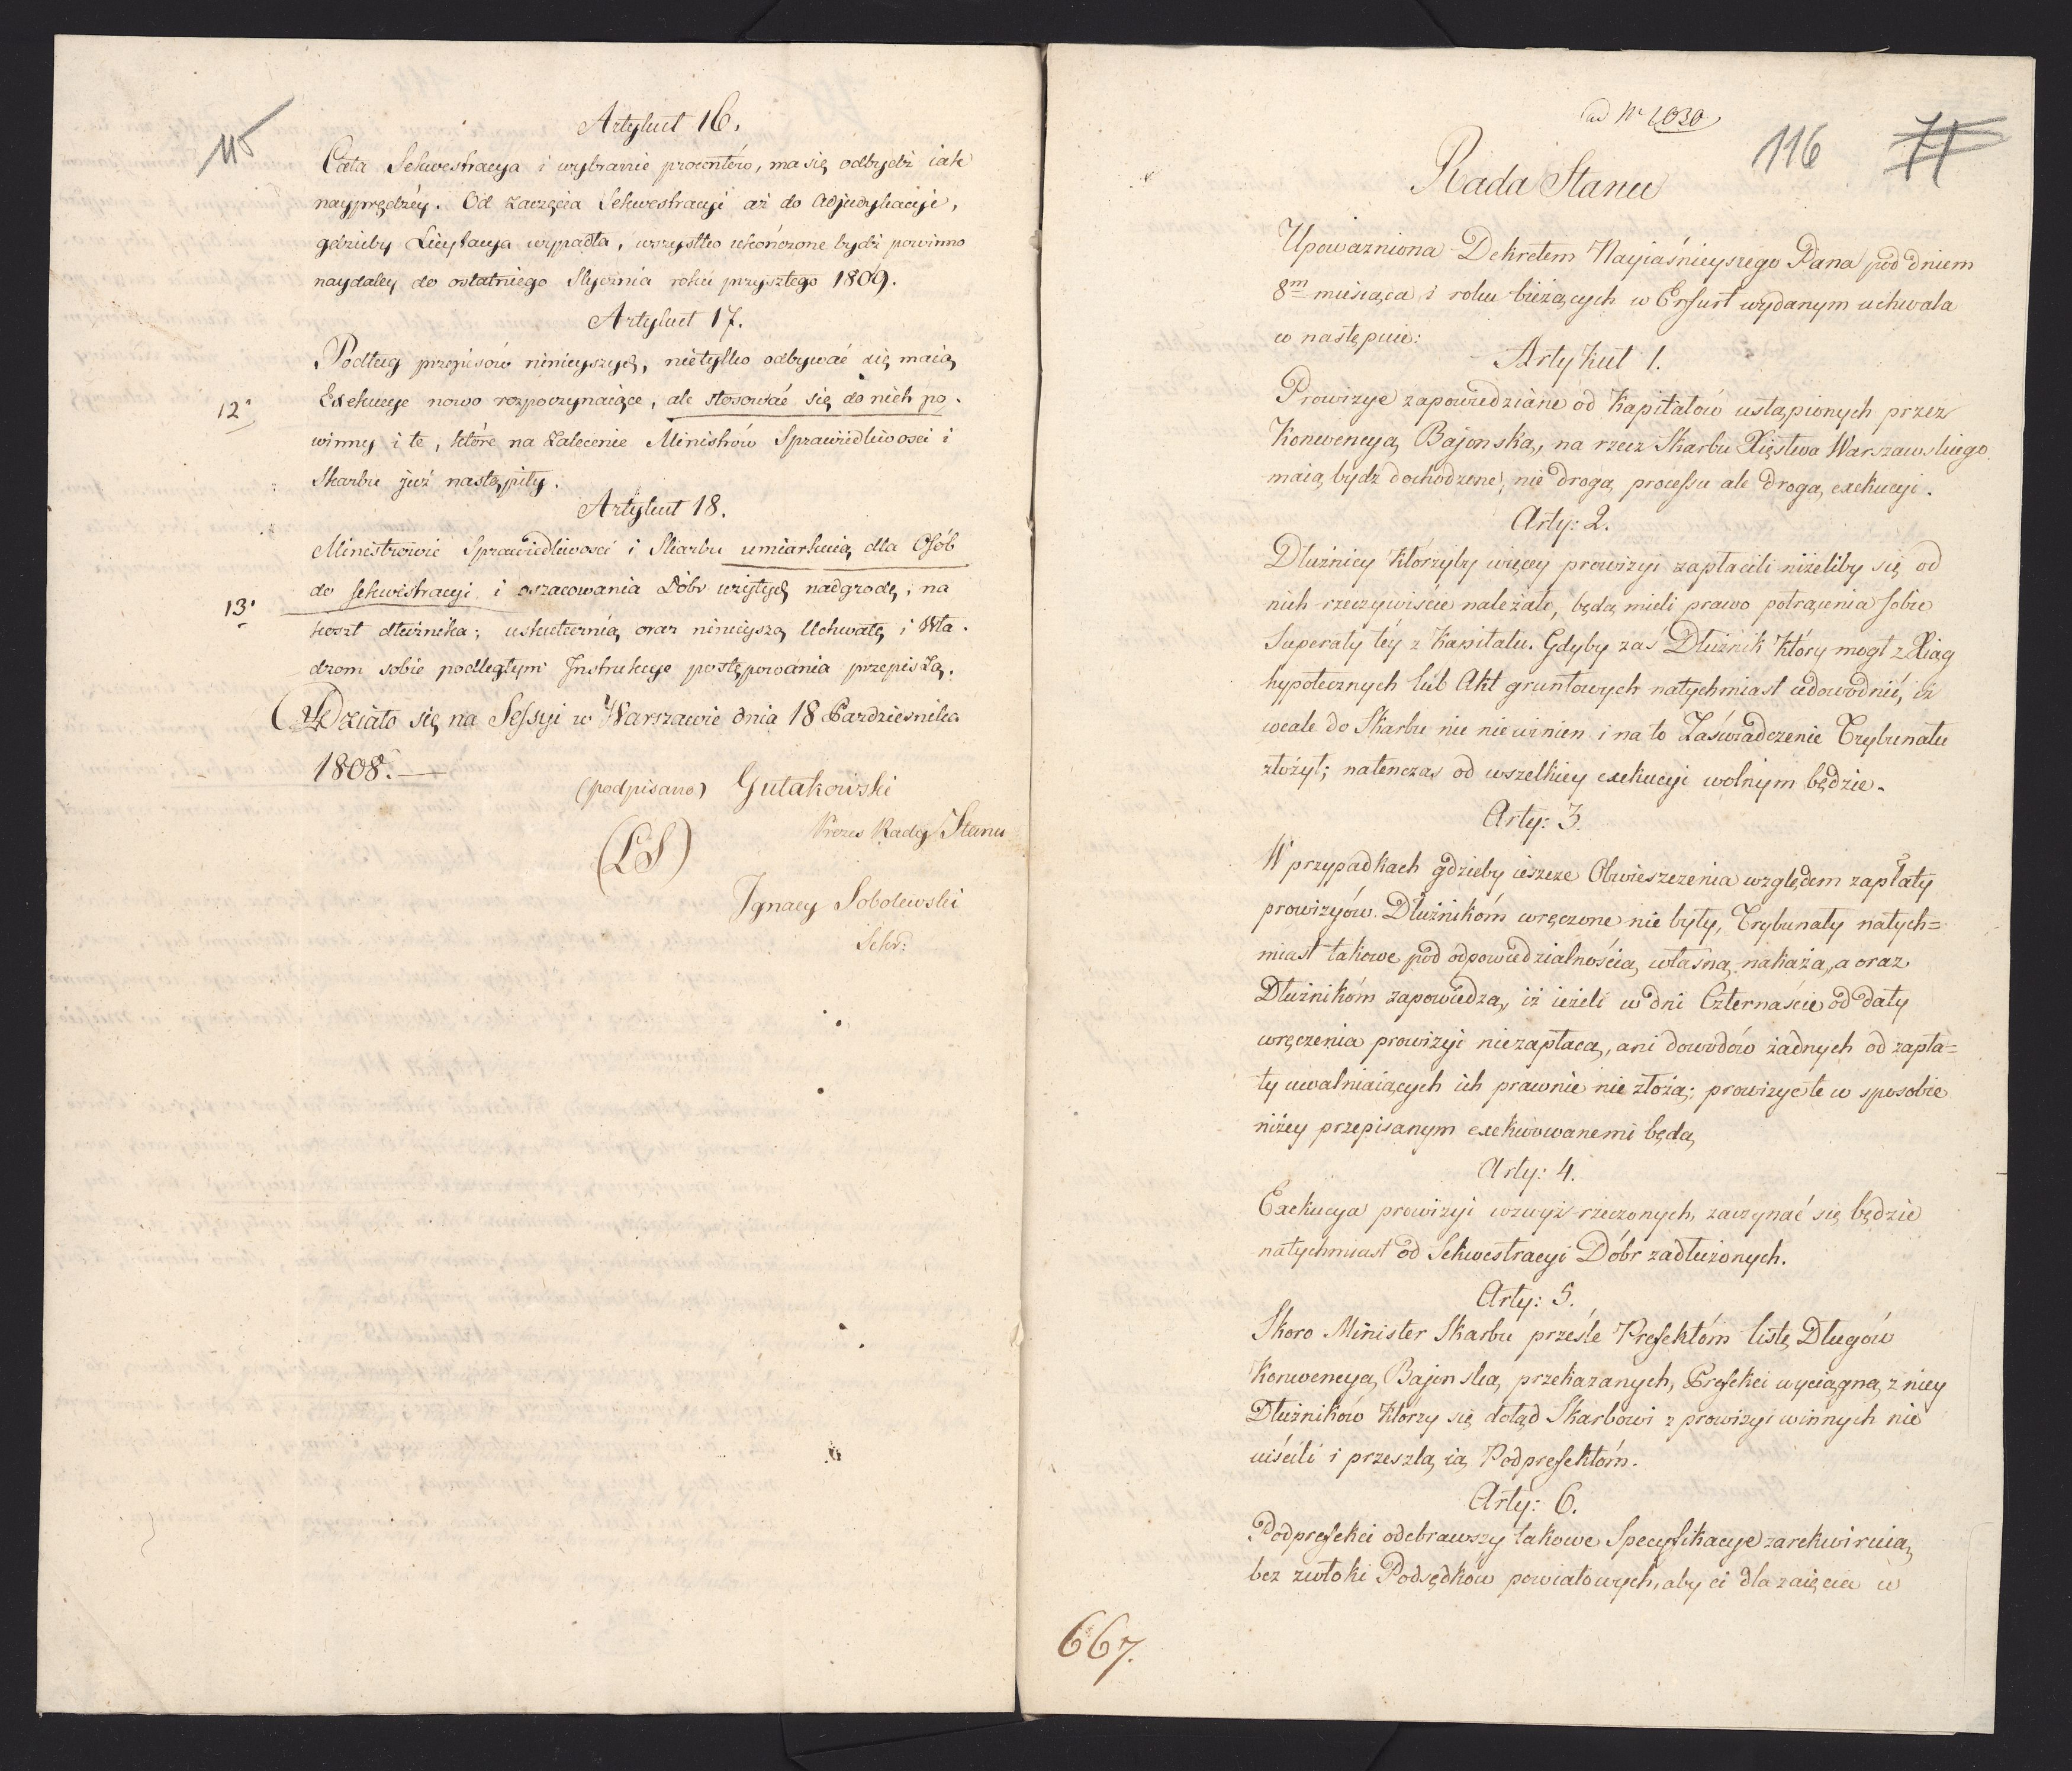 115
Artykuł 16.
Cała Sekwestracya i wybranie procentów, ma się odbydź iak
nayprędzéy. Od zaczęcia Sekwestracyi aż do Adjudykacyi,
gdzieby Licytacya wypadła, wszystko ukończone bydź powinno
naydaley do ostatniego Stycznia roku przyszłego 1809.
Artykuł 17.
Podług przepisów ninieyszych, nietylko odbywać się maią
12.
Exekucye nowo rozpoczynaiące, ale stosować się do nich po-
winny i te, które na zalecenie Ministrów Sprawiedliwosci i
Skarbu już nastąpiły.
Artykuł 18.
Ministrowie Sprawiedliwosci i Skarbu umiarkuią dla Osób
do sekwestracyi i oszacowania Dóbr wziętych nadgrodę, na
13.
koszt dłużnika; uskutecznią oraz ninieyszą Uchwałę, i Wła-
dzom sobie podległym Instrukcye postępowania przepiszą.
Działo się na Sessyi w Warszawie dnia 18 Pazdziernika
1808.—
(podpisano) Gutakowski
Prezes Rady Stanu
(LS)
Ignacy Sobolewski
Sekr:
ad Nr 1,030
116 71
Rada Stanu
Upoważniona Dekretem Nayiaśnieyszego Pana pod dniem
8m miesiąca i roku bieżących w Erfurt wydanym uchwala
co następuie:
Artykuł 1.
Prowizye zapowiedziane od Kapitałów ustąpionych przez
Konwencyą Bajonską, na rzecz Skarbu Xięstwa Warszawskiego
maią bydz dochodzone, nie drogą processu ale drogą exekucyi.
Arty: 2.
Dłużnicy którzyby więcey prowizyi zapłacili niżeliby się od
nich rzeczywiście należało, będą mieli prawo potrącenia sobie
Superaty téy z Kapitału. Gdyby zaś Dłużnik który mogł z Xiąg
hypotecznych lub Akt gruntowych natychmiast udowodnić, iż
wcale do Skarbu nic nie winien i na to Zaświadczenie Trybunału
złożył; natenczas od wszelkiey exekucyi wolnym będzie.
Arty: 3.
W przypadkach gdzieby ieszcze Obwieszczenia względem zapłaty
prowizyów Dłużnikóm wręczone nie były, Trybunały natych=
miast takowe pod odpowiedzialnością własną nakażą, a oraz
Dłużnikóm zapowiedzą, iż ieżeli w dni Czternaście od daty
wręczenia prowizyi niezapłacą, ani dowodów żadnych od zapła=
ty uwalniaiących ich prawnie nie złożą; prowizye te w sposobie
niżey przepisanym exekwowanemi będą
Arty: 4.
Exekucya prowizyi wzwyż rzeczonych, zaczynać się będzie
natychmiast od Sekwestracyi Dóbr zadłużonych.
Arty: 5.
Skoro Minister Skarbu prześle Prefektóm listę Długów
Konwencyą Bajonską przekazanych, Prefekci wyciągną z niey
Dłużników którzy się dotąd Skarbowi z prowizyi winnych nie
uiścili i przeszlą ią Podprefektóm.
Arty: 6.
Podprefekci odebrawszy takowe Specyfikacye zarekwiruią
bez zwłoki Podsędków powiatowych, aby ci dla zaięcia w
667.